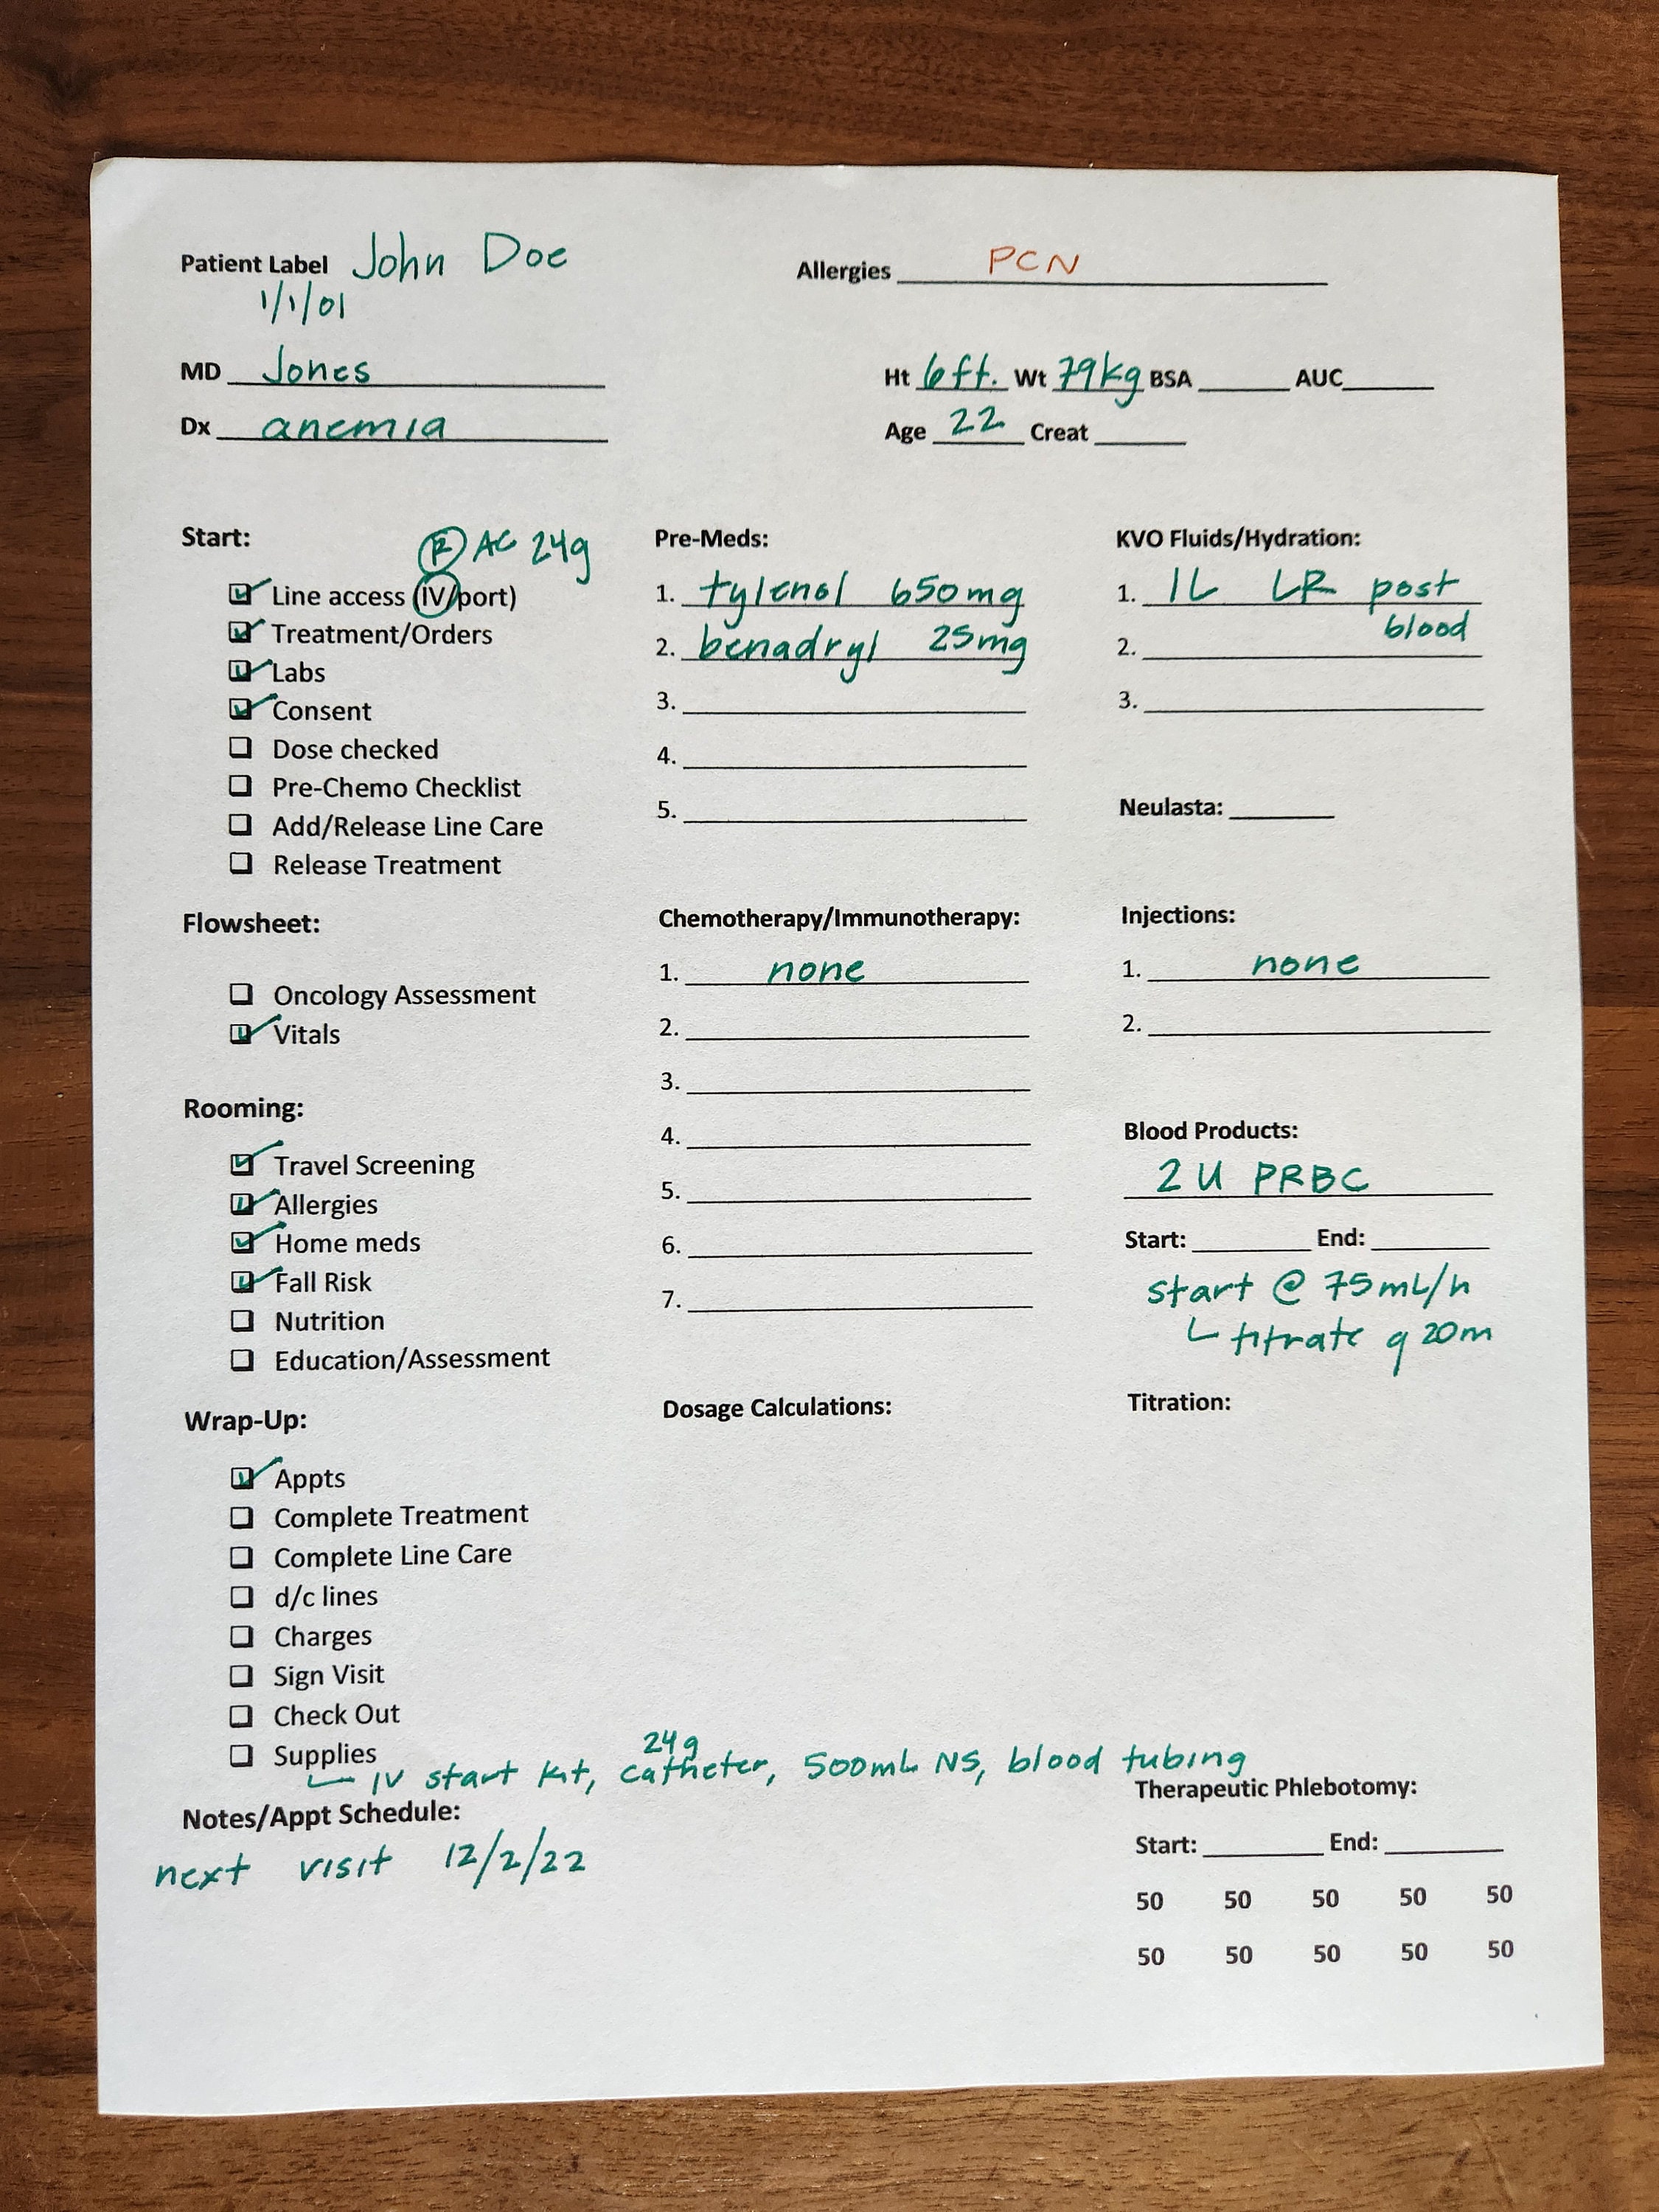 Patient Label John Doe
1/1/01
Allergies PCN
MD Jones
Ht 6ft. Wt 79kg BSA AUC
Dx anemia
Age 22 Creat
Start:
Ⓡ AC 24g
Line access (IV/port)
Treatment/Orders
Labs
Consent
Dose checked
Pre-Chemo Checklist
Add/Release Line Care
Release Treatment
Flowsheet:
Oncology Assessment
Vitals
Rooming:
Travel Screening
Allergies
Home meds
Fall Risk
Nutrition
Education/Assessment
Wrap-Up:
Appts
Complete Treatment
Complete Line Care
d/c lines
Charges
Sign Visit
Check Out
Supplies
24g
IV start kit, catheter, 500mL NS, blood tubing
Notes/Appt Schedule:
next visit 12/2/22
Pre-Meds:
1. tylenol 650mg
2. benadryl 25mg
3.
4.
5.
Chemotherapy/Immunotherapy:
1. none
2.
3.
4.
5.
6.
7.
Dosage Calculations:
KVO Fluids/Hydration:
1. 1L LR post
blood
2.
3.
Neulasta:
Injections:
1. none
2.
Blood Products:
2 U PRBC
Start: End:
start @ 75mL/h
titrate q 20m
Titration:
Therapeutic Phlebotomy:
Start: End:
50 50 50 50 50
50 50 50 50 50